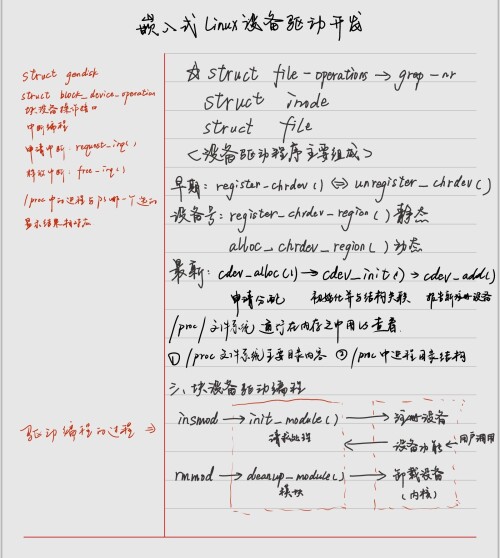 嵌入式Linux设备驱动开发
struct gendisk
struct block_device_operation
块设备操作接口
中断编程
申请中断: request_irq()
释放中断: free_irq()
/proc中的进程与ps哪一个进的
显示结果相对应
☆ struct file-operations → grop-nr
struct inode
struct file
<设备驱动程序主要组成>
早期: register-chrdev() ⇔ unregister_chrdev()
设备号: register_chrdev-region() 静态
alloc_chrdev_region() 动态
最新: cdev_alloc() → cdev_init() → cdev_add()
申请分配 初始化并与结构关联 设备
/proc/文件系统 运行在内存之中用以查看.
① /proc文件系统主要目录内容 ② /proc中进程目录结构
三、块设备驱动编程
驱动编程的过程 ⇒
insmod → init_module() → 注册设备
请求处理 ← 设备功能 ← 用户调用
rmmod → cleanup_module() → 卸载设备
模块 (内核)